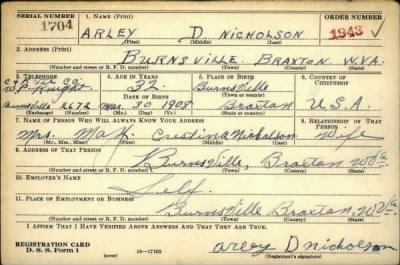 SERIAL NUMBER 1. NAME (Print) ORDER NUMBER
1704 ARLEY D NICHOLSON 1943 ✓
(First) (Middle) (Last)
2. ADDRESS (Print)
BURNSVILLE BRAXTON W.VA.
(Number and street or R. F. D. number) (Town) (County) (State)
3. TELEPHONE 4. AGE IN YEARS 5. PLACE OF BIRTH 6. COUNTRY OF CITIZENSHIP
32 Burnsville
(Town or county)
Mar. 30 1908 Braxton U.S.A.
(Exchange) (Number) (Mo.) (Day) (Yr.) (State or country)
7. NAME OF PERSON WHO WILL ALWAYS KNOW YOUR ADDRESS 8. RELATIONSHIP OF THAT PERSON
Mrs. Cristina Nicholson Wife
(Mr., Mrs., Miss) (First) (Middle) (Last)
9. ADDRESS OF THAT PERSON
Burnsville, Braxton
(Number and street or R. F. D. number) (Town) (County) (State)
10. EMPLOYER'S NAME
Self
11. PLACE OF EMPLOYMENT OR BUSINESS
Burnsville Braxton,
(Number and street or R. F. D. number) (Town) (County) (State)
I AFFIRM THAT I HAVE VERIFIED ABOVE ANSWERS AND THAT THEY ARE TRUE.
REGISTRATION CARD
D. S. S. Form 1 (over) 16—17105 Arley D Nicholson
(Registrant's signature)